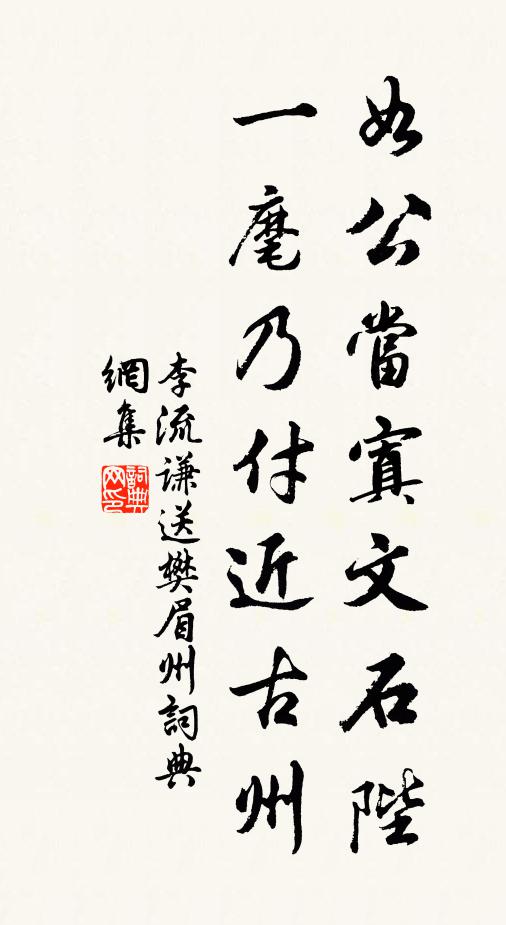 如公當寘文石陛
一麾乃付近古州
李流謙送樊眉州詞典
網集
詞典網印